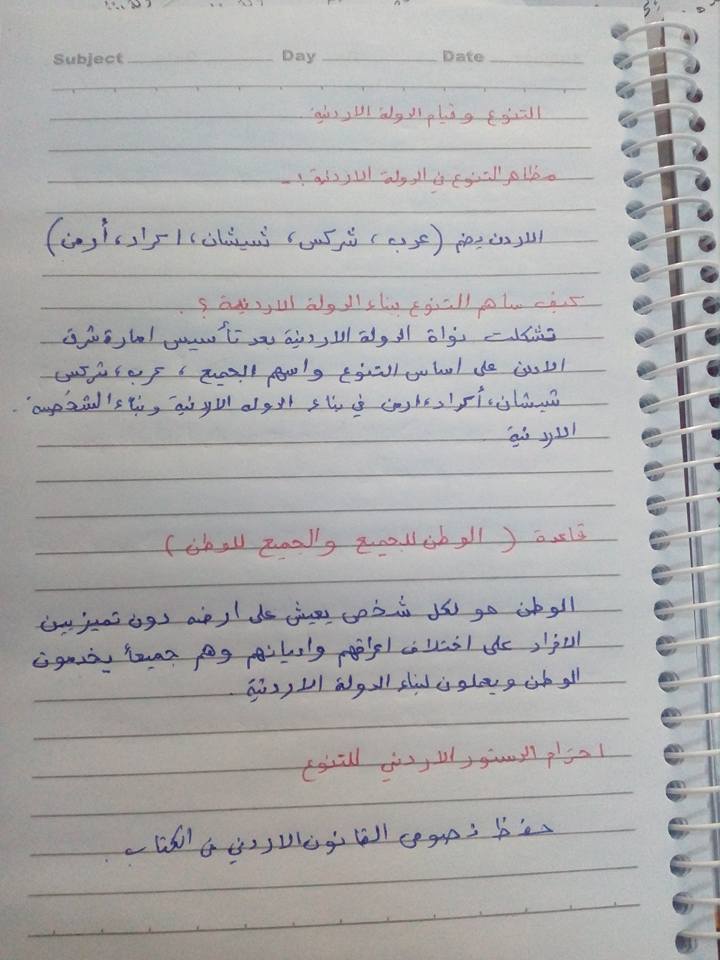 Subject Day Date
التنوع و قيام الدولة الاردنية
مظاهر التنوع في الدولة الاردنية :-
الاردن يضم (عرب ، شركس ، شيشان ، اكراد ، أرمن)
كيف ساهم التنوع بناء الدولة الاردنية ؟ .
تشكلت نواة الدولة الاردنية بعد تأسيس امارة شرق
الاردن على اساس التنوع واسهم الجميع ، عرب ، شركس
شيشان ، أكراد ، ارمن في بناء الدوله الاردنية وبناء الشخصية
الاردنية
قاعدة ( الوطن للجميع والجميع للوطن )
الوطن هو لكل شخص يعيش على ارضه دون تميز بين
الافراد على اختلاف اعراقهم واديانهم وهم جميعاً يخدمون
الوطن ويعملون لبناء الدولة الاردنية .
احترام الدستور الاردني للتنوع
حفظ نصوص القانون الاردني من الكتاب .